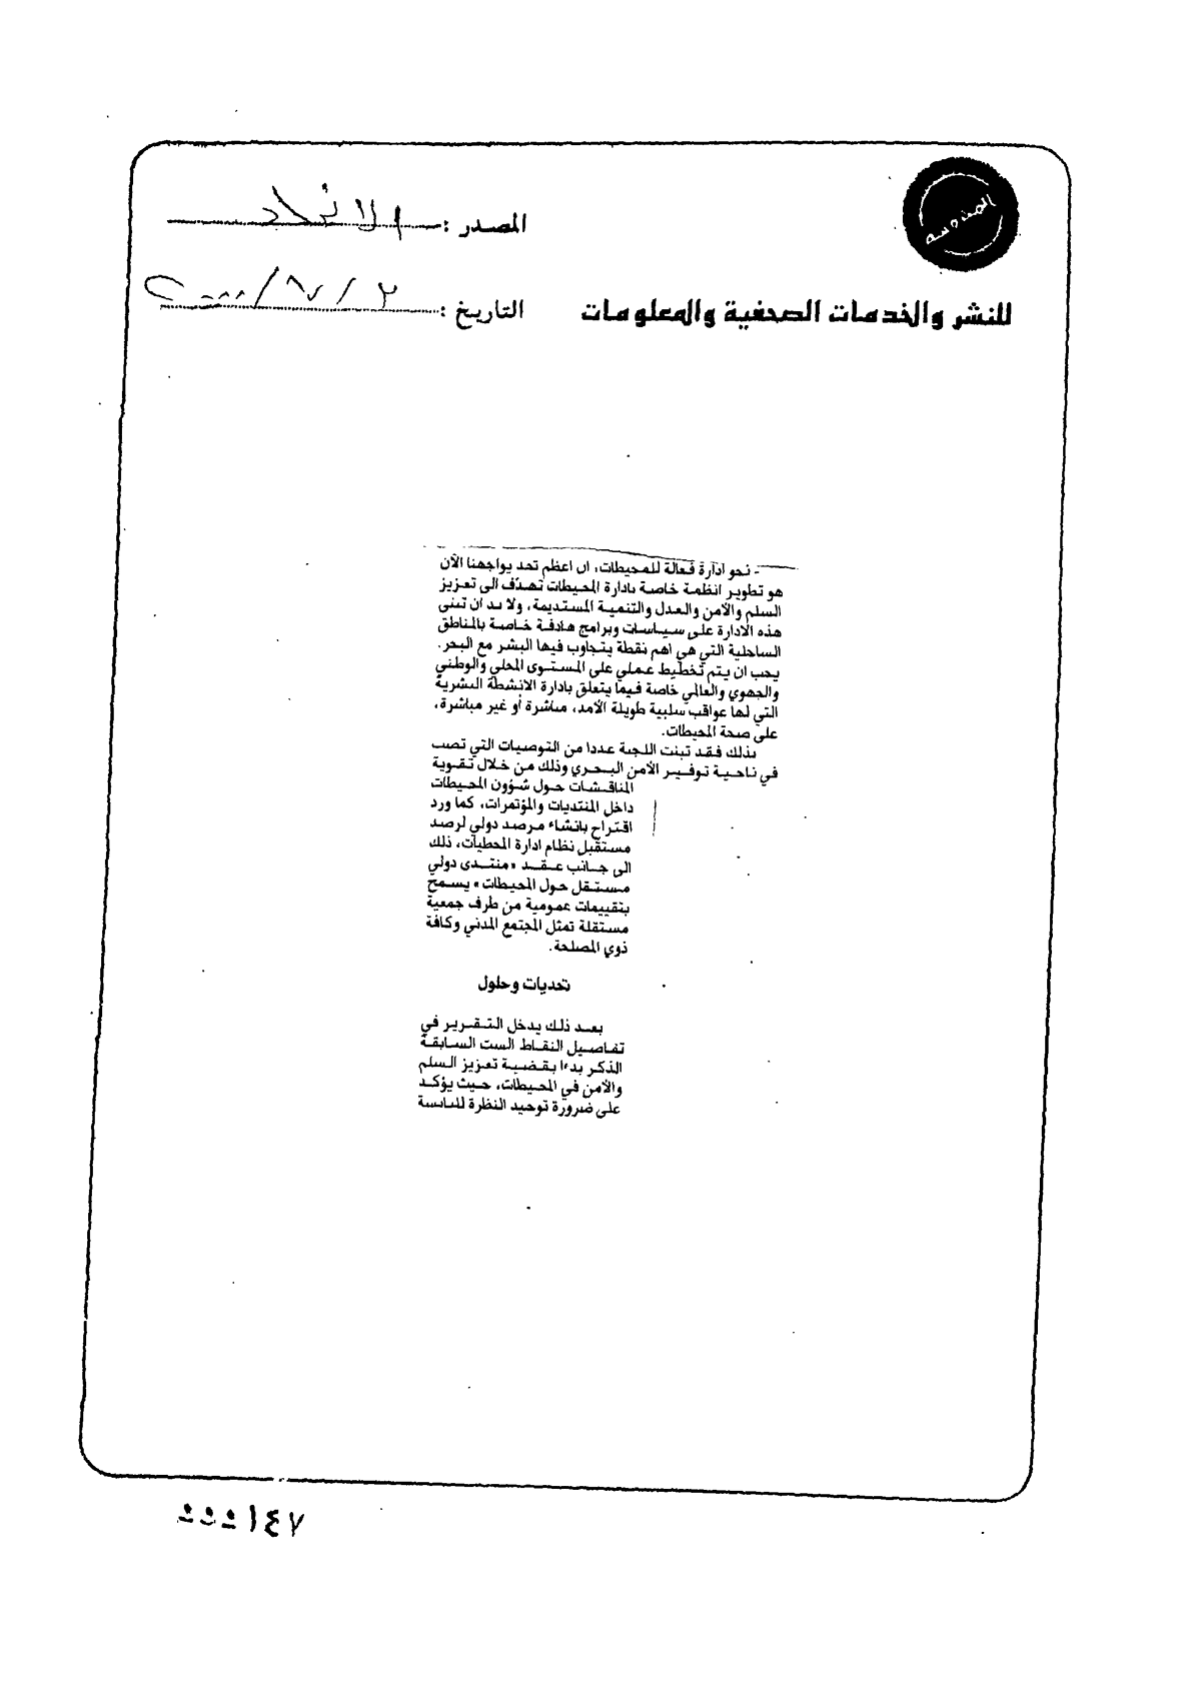 المصدر : الاتحاد
للنشر والخدمات الصحفية والمعلومات
التاريخ :
- نحو ادارة فعالة للمحيطات، ان اعظم تحد يواجهنا الآن
هو تطوير انظمة خاصة بادارة المحيطات تهدف الى تعزيز
السلم والأمن والعدل والتنمية المستديمة، ولا بد ان تبنى
هذه الادارة على سياسات وبرامج هادفة خاصة بالمناطق
الساحلية التي هي اهم نقطة يتجاوب فيها البشر مع البحر.
يجب ان يتم تخطيط عملي على المستوى المحلي والوطني
والجهوي والعالمي خاصة فيما يتعلق بادارة الانشطة البشرية
التي لها عواقب سلبية طويلة الأمد، مباشرة أو غير مباشرة،
على صحة المحيطات.
بذلك فقد تبنت اللجنة عددا من التوصيات التي تصب
في ناحية توفير الأمن البحري وذلك من خلال تقوية
المناقشات حول شؤون المحيطات
داخل المنتديات والمؤتمرات، كما ورد
اقتراح بانشاء مرصد دولي لرصد
مستقبل نظام ادارة المحطيات، ذلك
الى جانب عقد «منتدى دولي
مستقل حول المحيطات» يسمح
بتقييمات عمومية من طرف جمعية
مستقلة تمثل المجتمع المدني وكافة
ذوي المصلحة.
تحديات وحلول
بعد ذلك يدخل التقرير في
تفاصيل النقاط الست السابقة
الذكر بدءا بقضية تعزيز السلم
والأمن في المحيطات، حيث يؤكد
على ضرورة توحيد النظرة لليابسة